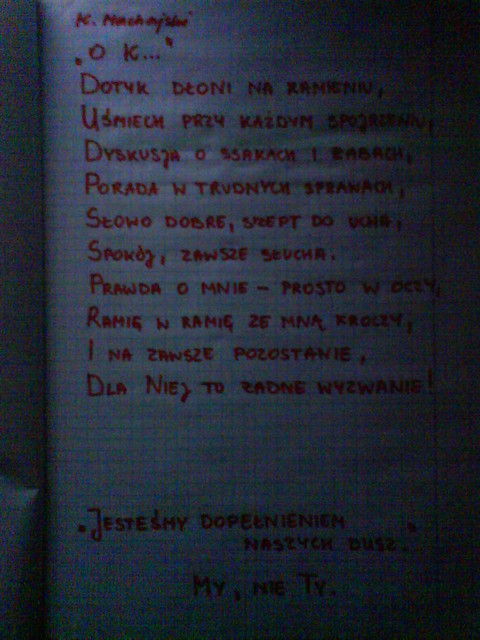 K. Machajski
„O K..."
DOTYK DŁONI NA RAMIENIU,
UŚMIECH PRZY KAŻDYM SPOJRZENIU,
DYSKUSJA O SSAKACH I ŻABACH,
PORADA W TRUDNYCH SPRAWACH,
SŁOWO DOBRE, SZEPT DO UCHA,
SPOKÓJ, ZAWSZE SŁUCHA.
PRAWDA O MNIE – PROSTO W OCZY,
RAMIĘ W RAMIĘ ZE MNĄ KROCZY,
I NA ZAWSZE POZOSTANIE,
DLA NIEJ TO ŻADNE WYZWANIE!
„JESTEŚMY DOPEŁNIENIEM
NASZYCH DUSZ."
MY, NIE TY.